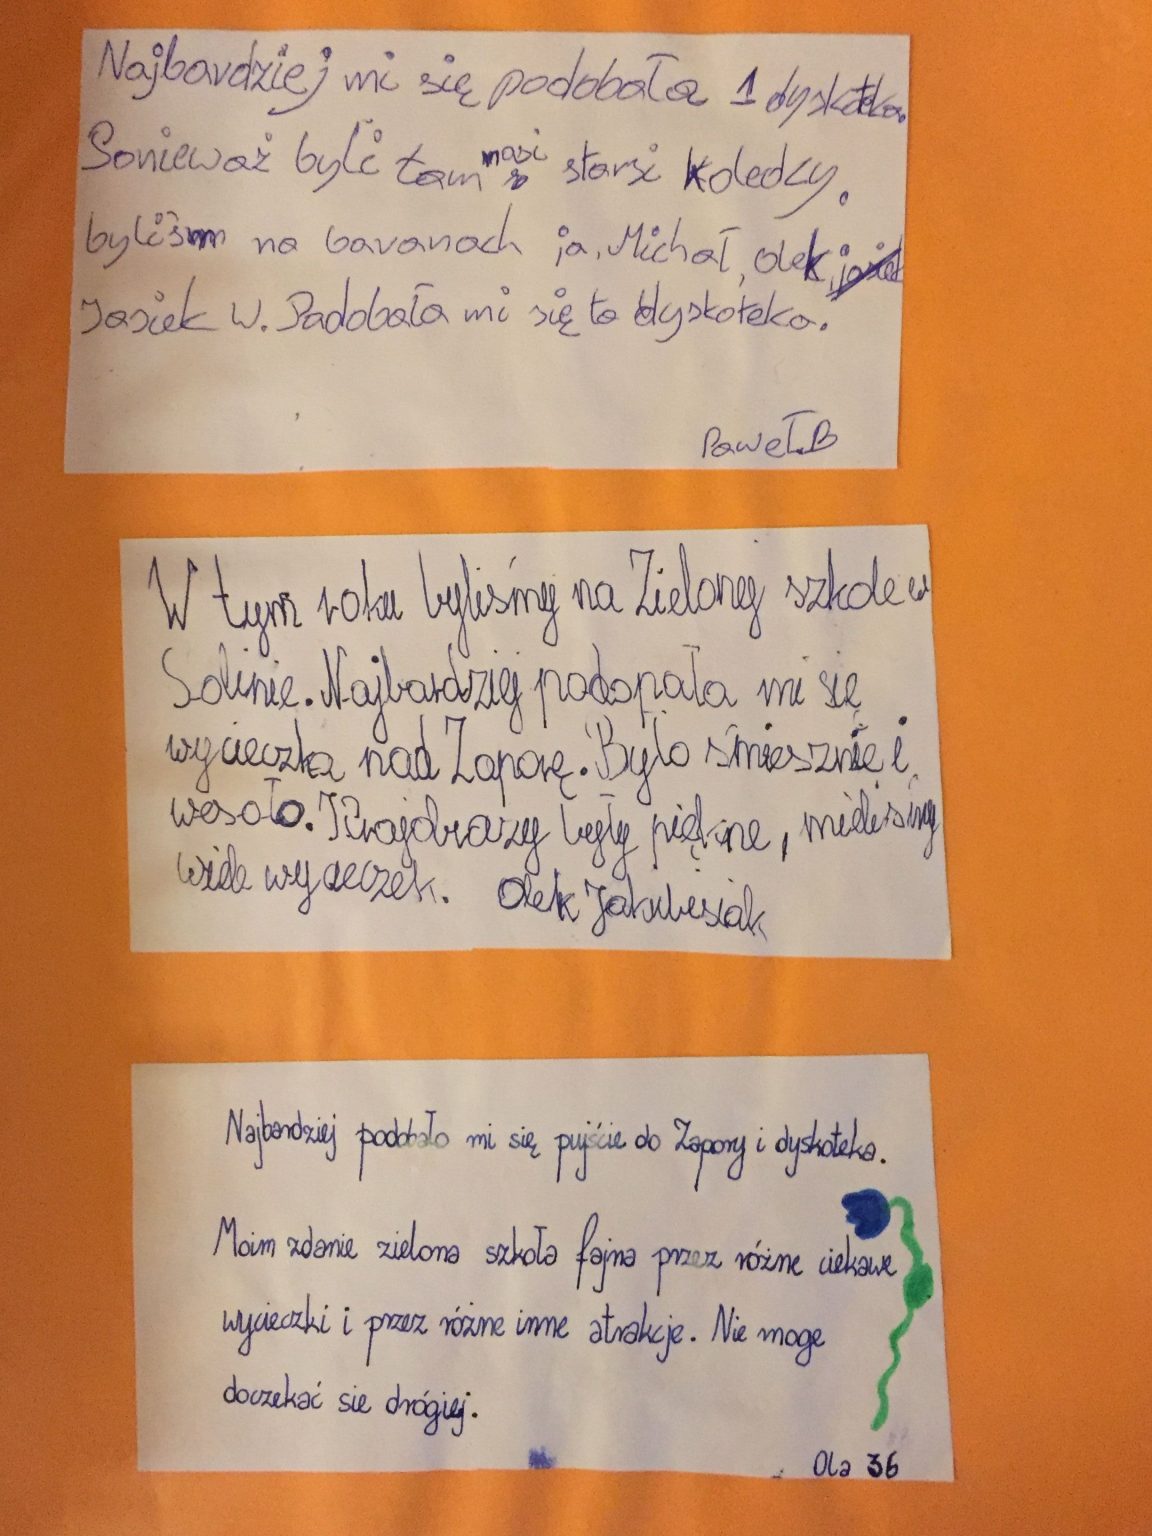 Najbardziej mi się podobała 1 dyskoteka.
Sonieważ byli tam nasi starsi koledzy.
byliśm na bavanach ja, Michał, Olek,
Jasiek W. Padobała mi się ta dyskoteka.
Paweł.B
W tym roku byliśmy na Zielonej szkole w
Solinie. Najbardziej podopała mi się
wycieczka nad Zaporę. Było śmiesznie i
wesoło. Krajobrazy były piękne, mieliśmy
wiele wycieczek. Olek Jakubisiak
Najbardziej podobało mi się pujście do Zapory i dyskoteka.
Moim zdanie zielona szkoła fajna przez różne ciekawe
wycieczki i przez różne inne atrakcje. Nie moge
doczekać sie drógiej.
Ola 3b